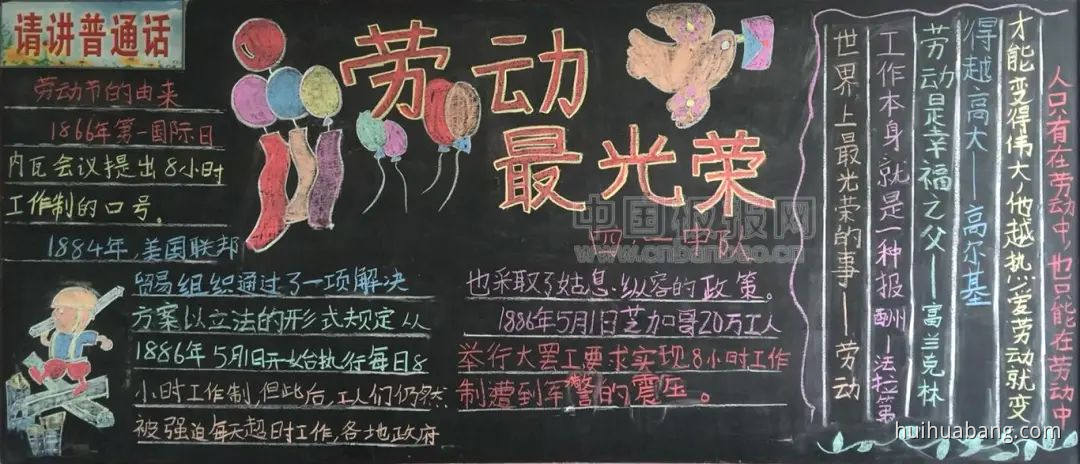 请讲普通话
劳动
最光荣
四一中队
劳动节的由来
1866年第一国际日
内瓦会议提出8小时
工作制的口号。
1884年,美国联邦
贸易组织通过了一项解决
方案以立法的形式规定从
1886年5月1日开始执行每日8
小时工作制,但此后,工人们仍然
被强迫每天超时工作,各地政府
也采取了姑息纵容的政策。
1886年5月1日芝加哥20万工人
举行大罢工要求实现8小时工作
制遭到军警的震压。
人只有在劳动中,也只能在劳动中
才能变得伟大,他越热爱劳动就变
得越高大—高尔基
劳动是幸福之父—富兰克林
工作本身就是一种报酬—法拉第
世界上最光荣的事—劳动
中国板报网
www.cnbanbao.cn
huihuabang.com